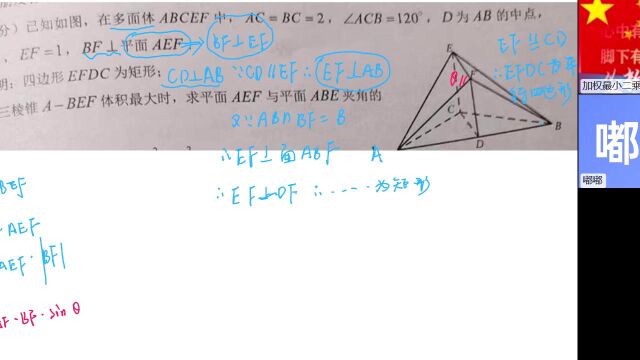 分）已知如图，在多面体 ABCEF 中，AC＝BC＝2，∠ACB＝120°，D 为 AB 的中点，
，EF＝1，BF⊥平面 AEF → BF⊥EF
明：四边形 EFDC 为矩形；CD⊥AB ∵CD∥EF ∴ EF⊥AB
三棱锥 A－BEF 体积最大时，求平面 AEF 与平面 ABE 夹角的
又∵AB∩BF＝B
∴EF⊥面ABF
∴EF⊥DF ∴ ···· 为矩形
E
F
C
D
B
A
EF CD
∴EFDC为平
行四边形
BEF
AEF
AEF·|BF|
F·BF·sin θ
心中有
脚下有
加权最小二乘
嘟
嘟嘟